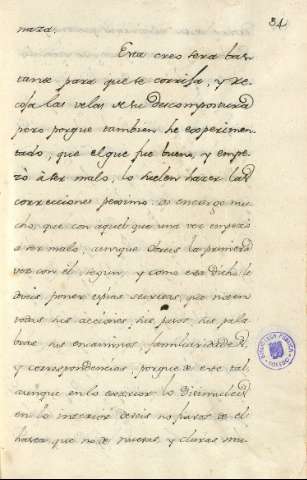 34
naza.
Esta creo sera bas
tante para que se corrija, y re
coja las velas de su descompostura
pero porque tambien he experimen
tado, que el que fue bueno, y empe
zò à ser malo, lo suelen hazer las
correcciones pesimo. os encargo mu
cho, que con aquel que una vez empezó
a ser malo, aunque obreis la primera
vez con el segun, y como esta dicho le
deis, poner espias secretas, que miren
todas sus acciones, sus pasos, sus pala
bras sus encaminos, familiaridades
y correspondencias, porque de este tal,
aunque en lo exterior lo disimuleis
en lo interior deveis no fiaros de el
hasta que no de nuevas, y claras mu
BIBLIOTECA PUBLICA
TOLEDO